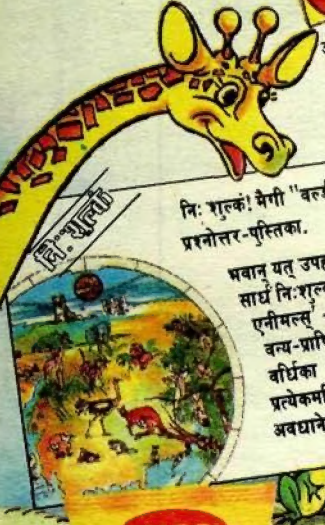 निःशुल्कं
निः शुल्कं! मैगी "वर्ल्ड
प्रश्नोत्तर-पुस्तिका.
भवान् यत् उपह
सार्धं निःशुल्क
एनीमल्स्
वन्य-प्राणि
वर्धिका
प्रत्येकमपि
अवधाने